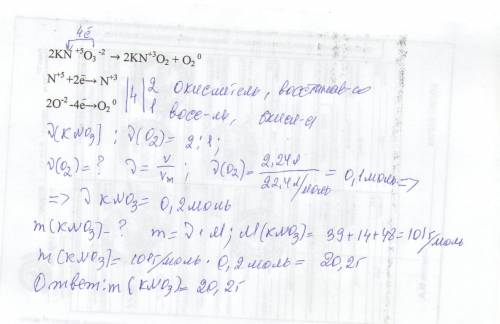 4ē
2KN⁺⁵O₃⁻² → 2KN⁺³O₂ + O₂⁰
N⁺⁵ +2ē → N⁺³ |4| 2 окислитель, восстанав-ся
2O⁻² -4ē→O₂⁰ 1 восс-ль, окисл-ся
ν(KNO₃) : ν(O₂) = 2:1;
ν(O₂) = ? ν = V/Vm ; ν(O₂) = 2,24л / 22,4л/моль = 0,1моль =>
=> ν KNO₃ = 0,2моль
m(KNO₃) - ? m = ν · M; M(KNO₃) = 39+14+48=101г/моль
m(KNO₃) = 101г/моль · 0,2моль = 20,2г
Ответ: m(KNO₃) = 20,2г